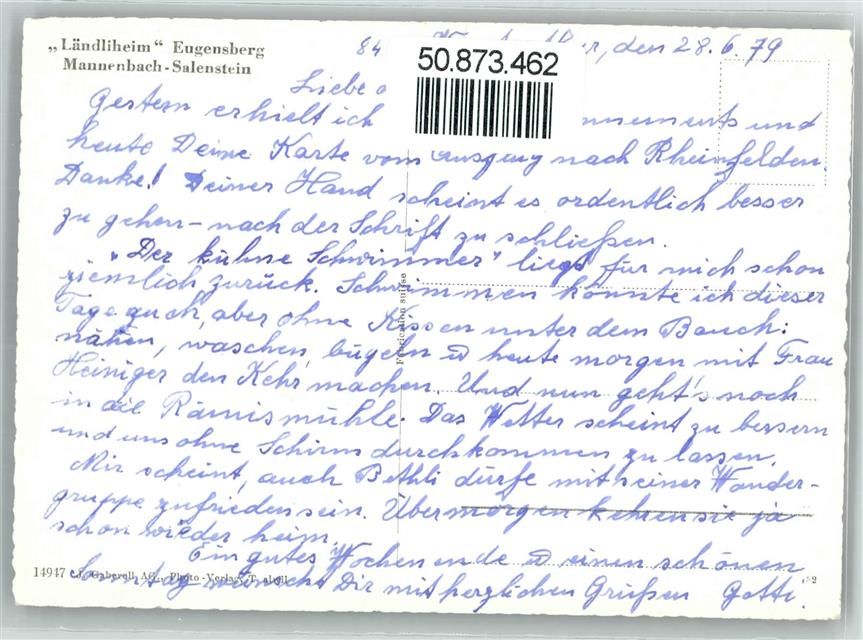 „Ländliheim“ Eugensberg
Mannenbach-Salenstein
84
den 28.6.79
50.873.462
Liebe
Gestern erhielt ich nnements und
heute Deine Karte vom Ausflug nach Rheinfelden.
Danke! Deiner Hand scheint es ordentlich besser
zu gehen – nach der Schrift zu schließen.
"Der kühne Schwimmer" liegt für mich schon
ziemlich zurück. Schwimmen könnte ich dieser
Tage auch, aber ohne Kissen unter dem Bauch:
nähen, waschen, bügeln u heute morgen mit Frau
Heiniger den Kehr machen. Und nun geht's noch
in die Rämismühle. Das Wetter scheint zu bessern
und uns ohne Schirm durchkommen zu lassen.
Mir scheint, auch Bethli dürfe mit seiner Wander-
gruppe zufrieden sein. Übermorgen kehren sie ja
schon wieder heim.
Ein gutes Wochenende u einen schönen
Sonntag wünscht Dir mit herzlichen Grüßen Gotti.
Fabrication suisse
14947 J. Gaberell AG., Photo-Verlag, Thalwil